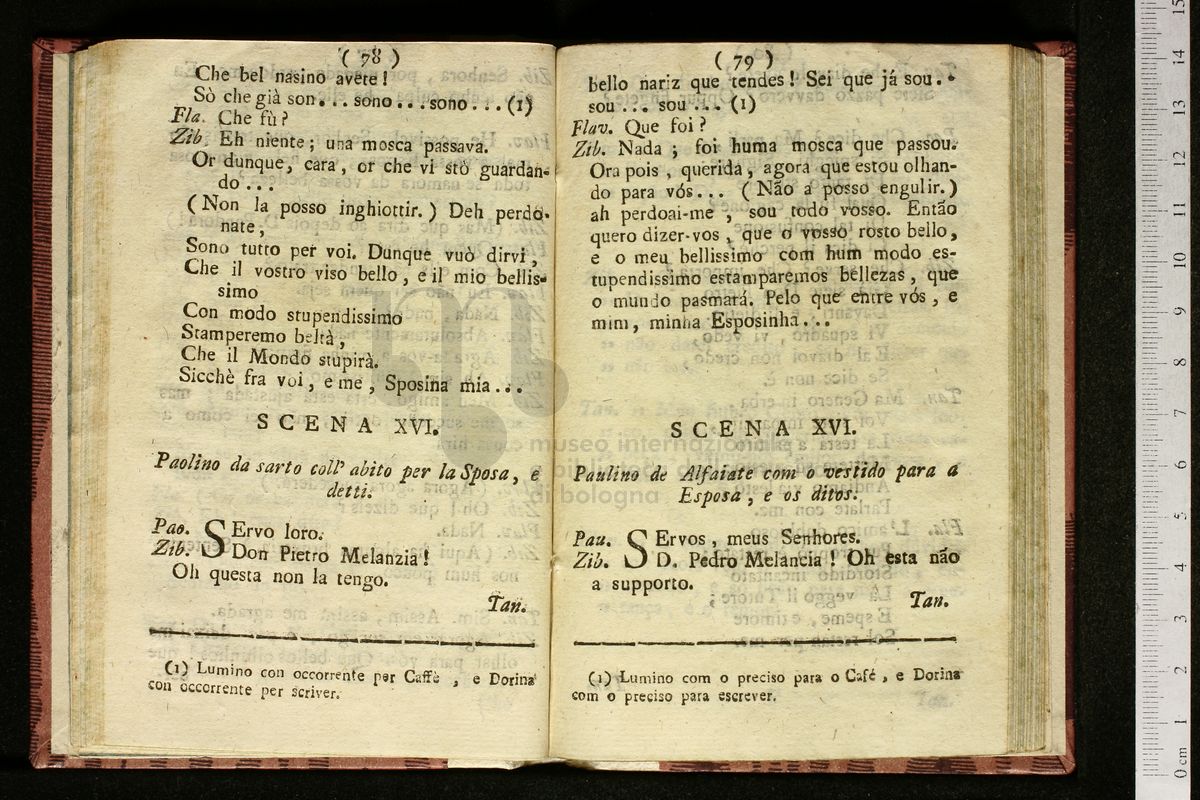 ( 78 )
Che bel nasino avete!
Sò che già son... sono... sono... (1)
Fla. Che fù?
Zib. Eh niente; una mosca passava.
Or dunque, cara, or che vi stò guardan-
do...
(Non la posso inghiottir.) Deh perdo-
nate,
Sono tutto per voi. Dunque vuò dirvi,
Che il vostro viso bello, e il mio bellis-
simo
Con modo stupendissimo
Stamperemo beltà,
Che il Mondo stupirà.
Sicchè fra voi, e me, Sposina mia...
SCENA XVI.
Paolino da sarto coll' abito per la Sposa, e
detti.
Pao. SErvo loro.
Zib. Don Pietro Melanzia!
Oh questa non la tengo.
Tan.
(1) Lumino con occorrente per Caffè, e Dorina
con occorrente per scriver.
( 79 )
bello nariz que tendes! Sei que já sou..
sou... sou... (1)
Flav. Que foi?
Zib. Nada; foi huma mosca que passou.
Ora pois, querida, agora que estou olhan-
do para vós... (Não a posso engulir.)
ah perdoai-me, sou todo vosso. Então
quero dizer-vos, que o vosso rosto bello,
e o meu bellissimo com hum modo es-
tupendissimo estamparemos bellezas, que
o mundo pasmará. Pelo que entre vós, e
mim, minha Esposinha...
SCENA XVI.
Paulino de Alfaiate com o vestido para a
Esposa, e os ditos.
Pau. SErvos, meus Senhores.
Zib. D. Pedro Melancia! Oh esta não
a supporto.
Tan.
(1) Lumino com o preciso para o Café, e Dorina
com o preciso para escrever.
museo internazionale
e biblioteca della musica
di bologna
0 cm 1 2 3 4 5 6 7 8 9 10 11 12 13 14 15